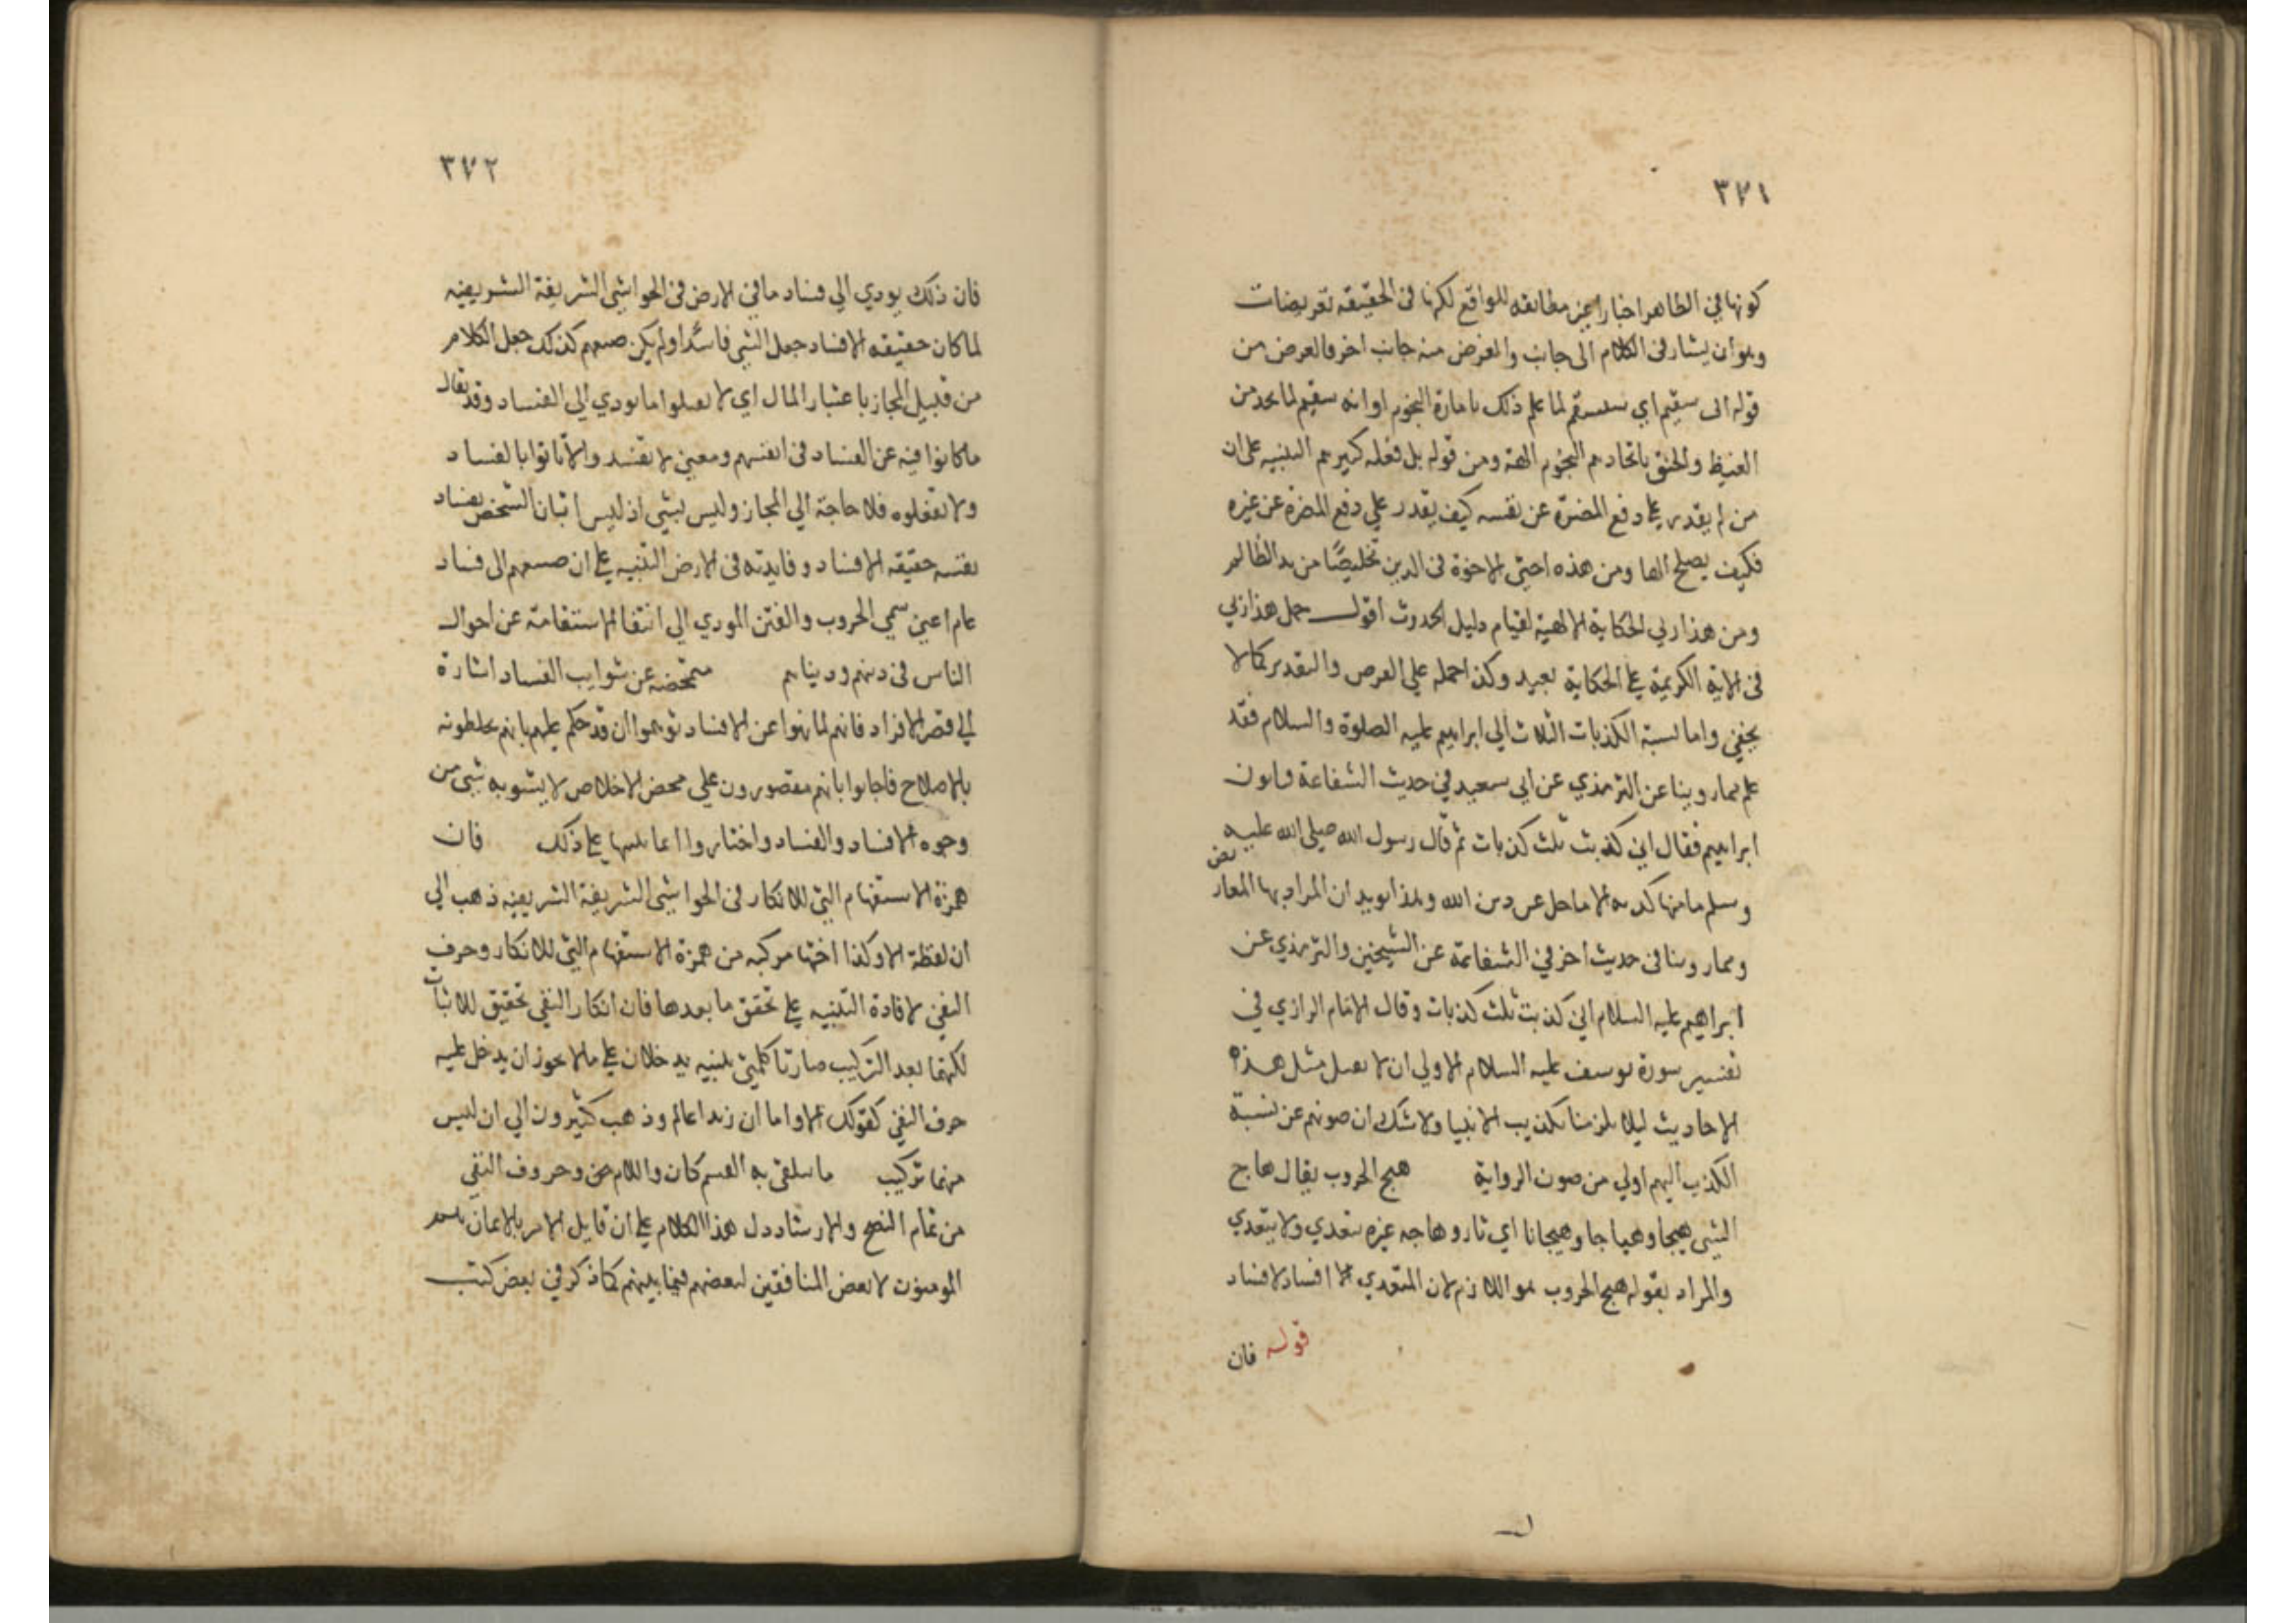 ٣٧١
كونها في الظاهر اخبارا غير مطابقه للواقع لكنها فى الحقيقه تعريضات
وهو ان يشار فى الكلام الى جانب والغرض منه جانب اخر فالغرض من
قوله انى سقيم اي سأسقم لما علم ذلك بامارة النجوم او انه سقيم لما يجد من
الغيظ والحنق باتخاذهم النجوم الهة ومن قوله بل فعله كبيرهم التنبيه على ان
من لم يقدر على دفع المضرّة عن نفسه كيف يقدر علي دفع المضرة عن غيره
فكيف يصلح الها ومن هذه اختى الاخوة فى الدين تخليصًا من يد الظالم
ومن هذا ربي الحكاية الالهية لقيام دليل الحدوث اقول حمل هذا ربي
فى الاية الكريمة على الحكاية بعيد وكذا حمله علي الفرض والتقدير كما لا
يخفي واما نسبة الكذبات الثلاث الي ابراهيم عليه الصلوة والسلام فقد
علم مما روينا عن الترمذي عن ابى سعيد في حديث الشفاعة فياتون
ابراهيم فقال اني كذبت ثلث كذبات ثم قال رسول الله صلى الله عليه
وسلم ما منها كذبة الا ما حل عن دين الله وهذا يويد ان المراد بها المعاريض
ومما روينا فى حديث اخر في الشفاعة عن الشيخين والترمذي عن
ابراهيم عليه السلام انى كذبت ثلث كذبات وقال الامام الرازي في
تفسير سورة يوسف عليه السلام الاولي ان لا نقبل مثل هذه
الاحاديث ليلا يلزمنا تكذيب الانبيا ولا شك ان صونهم عن نسبة
الكذب اليهم اولي من صون الرواية هيج الحروب يقال هاج
الشي هيجا وهياجا وهيجانا اي ثار وهاجه غيره يتعدي ولا يتعدي
والمراد بقوله هيج الحروب هو اللازم لان المتعدي افساد لا فساد
قوله فان
٣٧٢
فان ذلك يودي الي فساد ما في الارض فى الحواشي الشريفة الشريفيه
لما كان حقيقه الافساد جعل الشي فاسدًا ولم يكن صنعهم كذلك جعل الكلام
من قبيل المجاز باعتبار المال اي لا تفعلوا ما يودي الي الفساد وقد يقال
ما كانوا فيه عن الفساد فى انفسهم ومعنى لا تفسدوا لا تاتوا بالفساد
ولا تفعلوه فلا حاجة الي المجاز وليس بشي اذ ليس اتيان الشخص بفساد
نفسه حقيقه الافساد وفايدته فى الارض التنبيه على ان صنعهم الى فساد
عام اعني سمي الحروب والفتن المودي الي انتفا الاستقامة عن احوال
الناس فى دينهم ودنياهم متمحضه عن شوايب الفساد اشارة
الي قصر الافراد فانهم لما نهوا عن الافساد توهموا ان قد حكم عليهم بانهم يخلطونه
بالاصلاح فاجابوا بانهم مقصورون علي محض الاخلاص لا يشوبه شي من
وجوه الافساد والفساد واختاروا انما تنبيها على ذلك فان
همزة الاستفهام التي للانكار فى الحواشي الشريفة الشريفيه ذهب الي
ان لفظة الا وكذا اختها مركبه من همزة الاستفهام التي للانكار وحرف
النفي لافادة التنبيه على تحقق ما بعدها فان انكار النفي تحقيق للاثبات
لكنهما بعد التركيب صارتا كلمتي تنبيه يدخلان على ما لا يجوز ان يدخل عليه
حرف النفي كقولك الا واما ان زيدا عالم وذهب كثيرون الي ان ليس
منهما تركيب ما يتلقى به القسم كان واللام وحروف النفي
من تمام النصح والارشاد دل هذا الكلام على ان قايل الامر بالايمان
المومنون لا بعض المنافقين لبعضهم فيما بينهم كما ذكر في بعض كتب